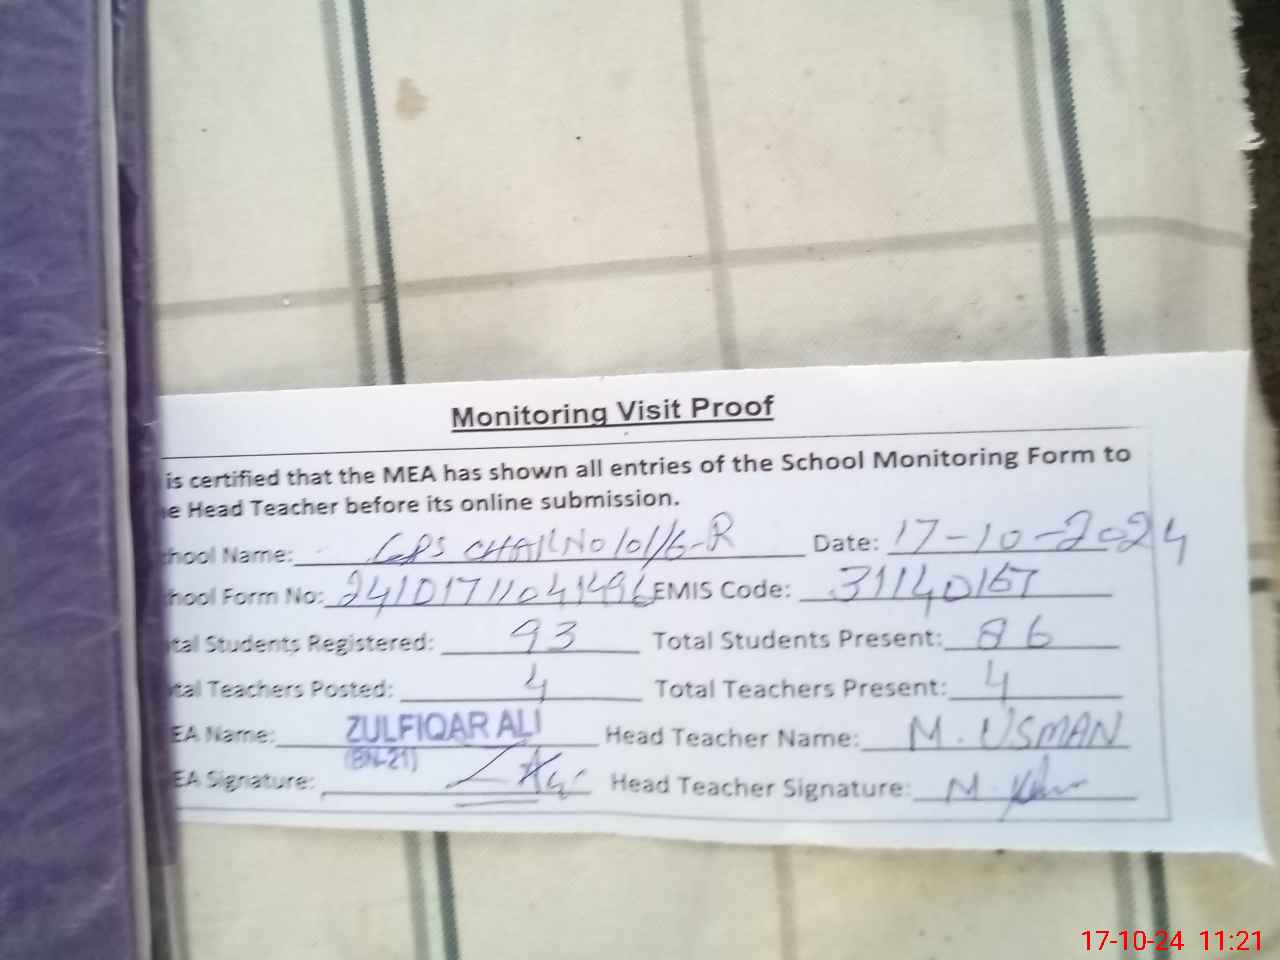 Monitoring Visit Proof
is certified that the MEA has shown all entries of the School Monitoring Form to
e Head Teacher before its online submission.
hool Name: GPS CHAK No 101/6-R Date: 17-10-2024
hool Form No: 24101711041496 EMIS Code: 31140167
tal Students Registered: 93 Total Students Present: 86
tal Teachers Posted: 4 Total Teachers Present: 4
EA Name: ZULFIQAR ALI Head Teacher Name: M. USMAN
(BN-21)
EA Signature: Head Teacher Signature: M.
17-10-24 11:21